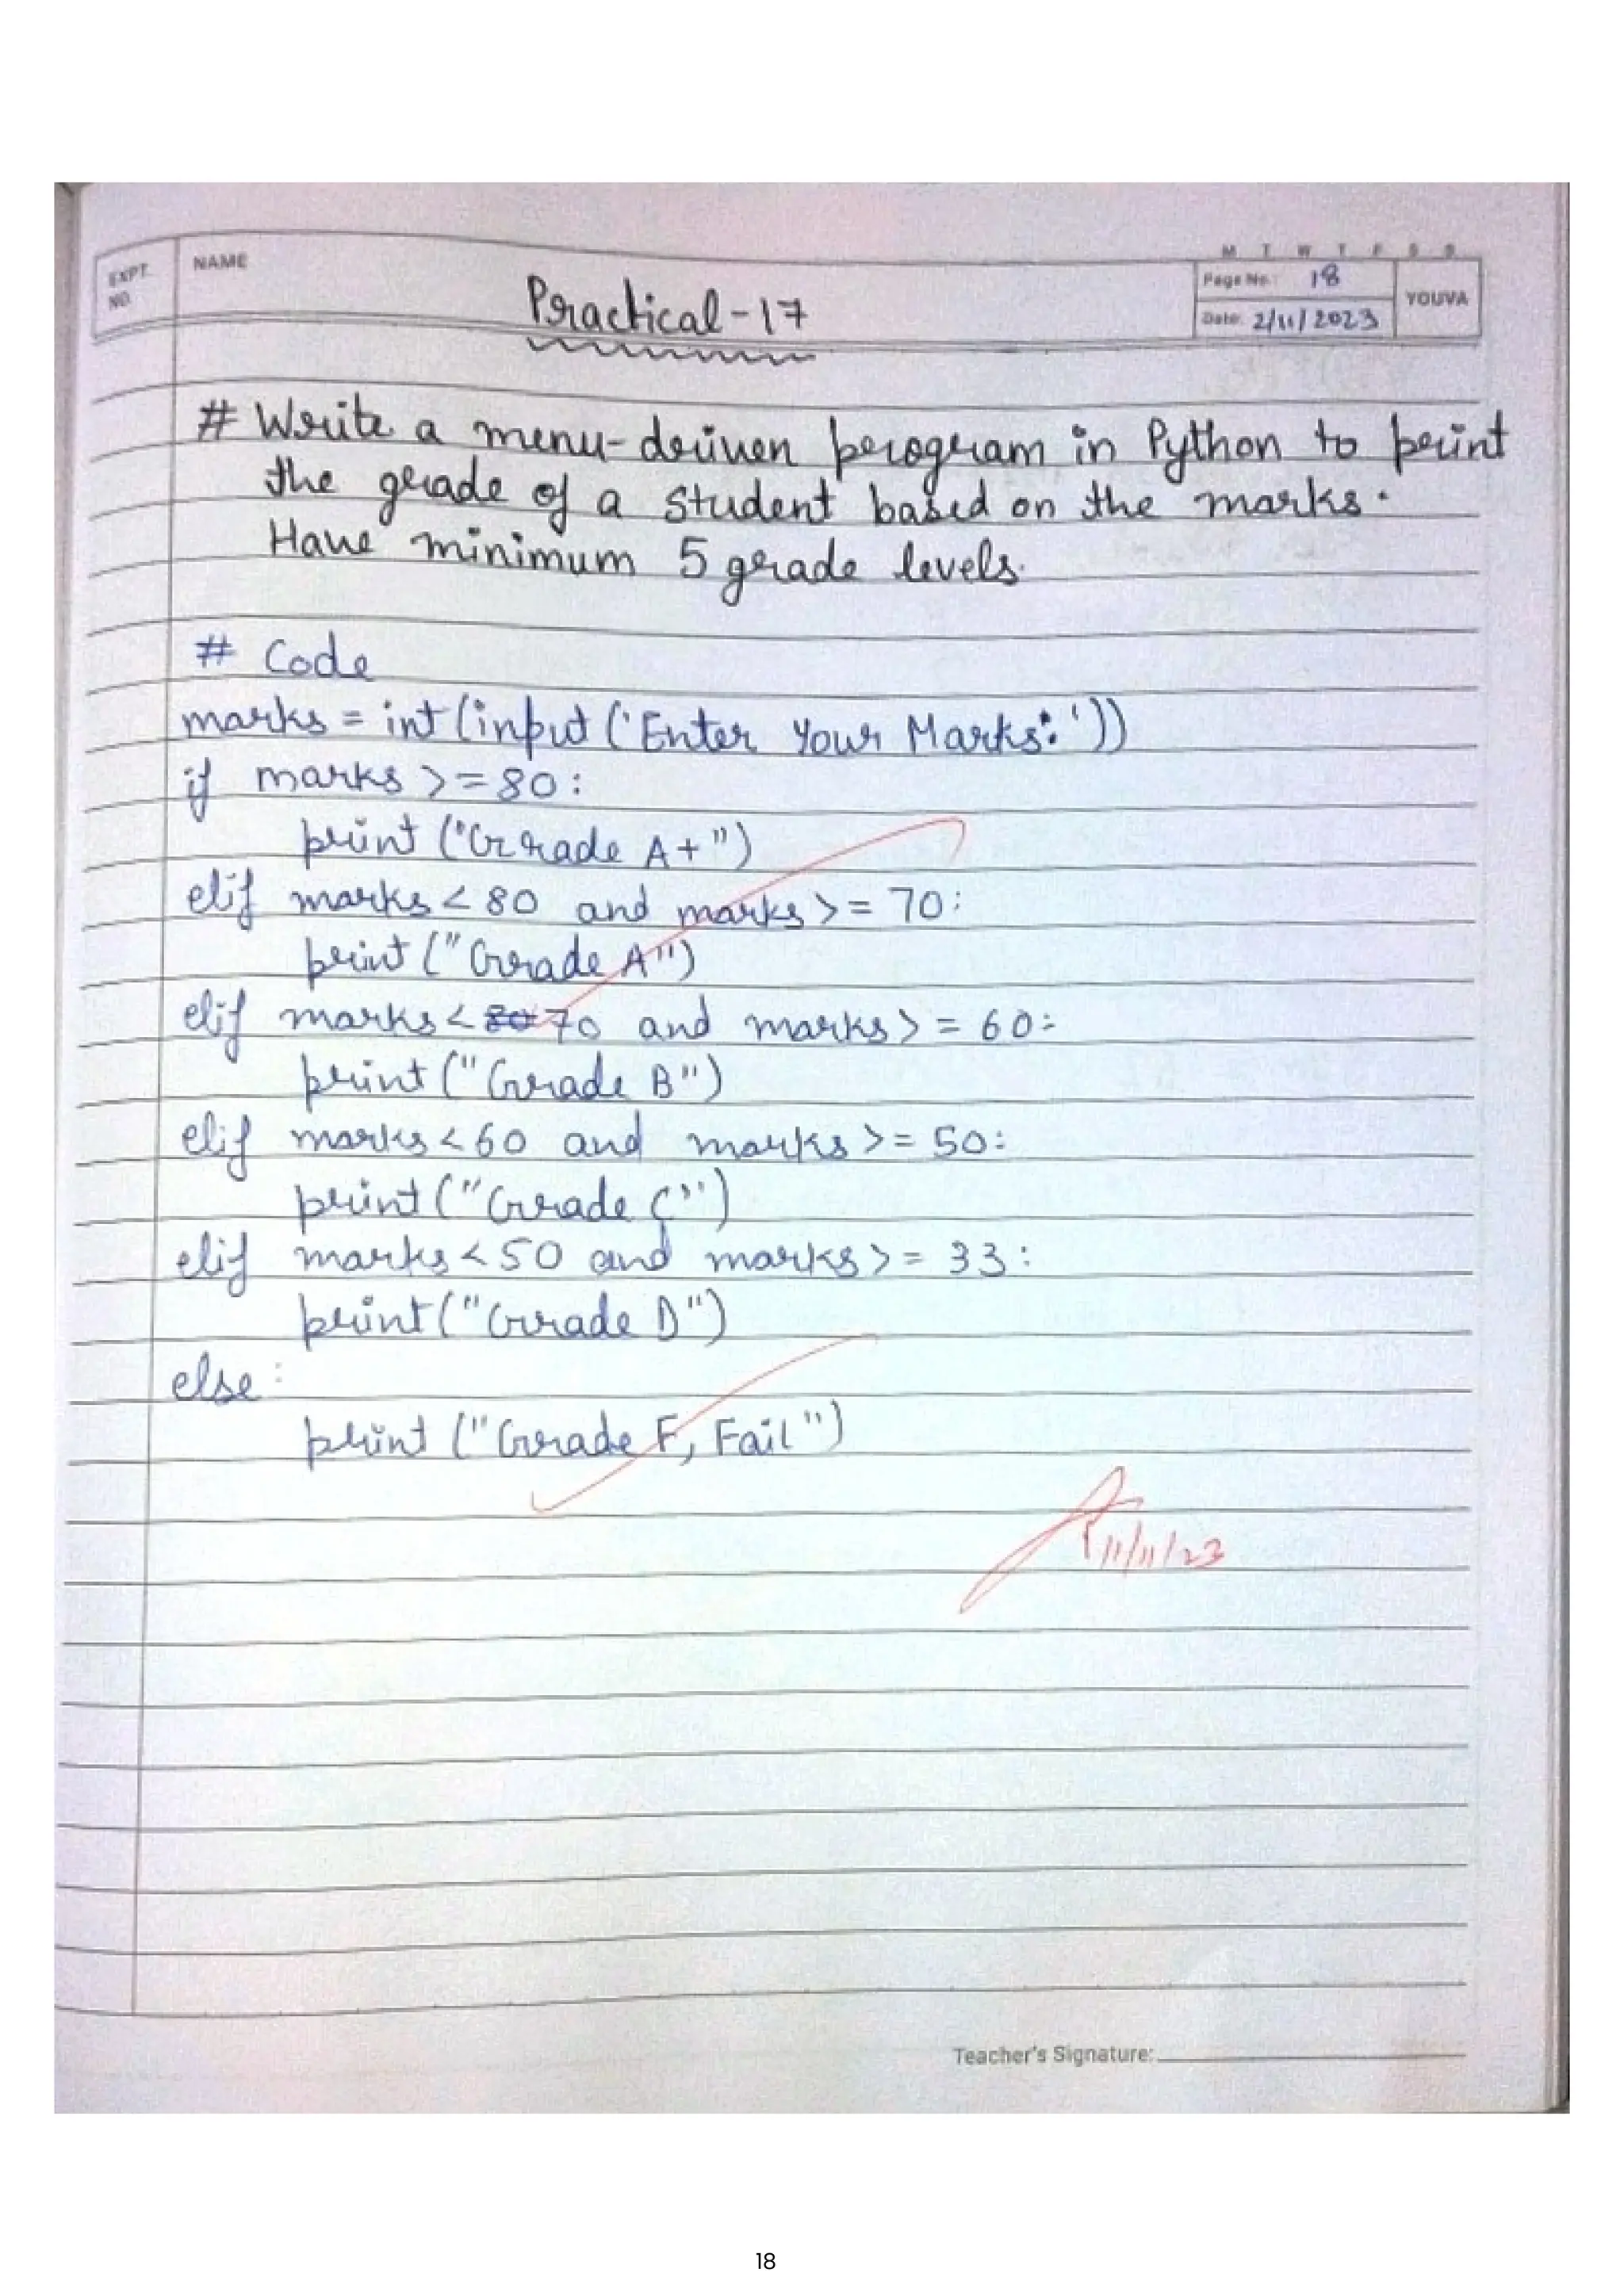 EXPT. NO.
NAME
M T W T F S S
Page No.: 18
Date: 2/11/2023
YOUVA
Practical-17
# Write a menu-driven program in Python to print
the grade of a student based on the marks.
Have minimum 5 grade levels.
# Code
marks = int(input('Enter Your Marks:'))
if marks >= 80:
print ("Grade A+")
elif marks < 80 and marks >= 70:
print ("Grade A")
elif marks < 70 and marks >= 60:
print ("Grade B")
elif marks < 60 and marks >= 50:
print ("Grade C")
elif marks < 50 and marks >= 33:
print ("Grade D")
else:
print ("Grade F, Fail")
11/11/23
Teacher's Signature:
18